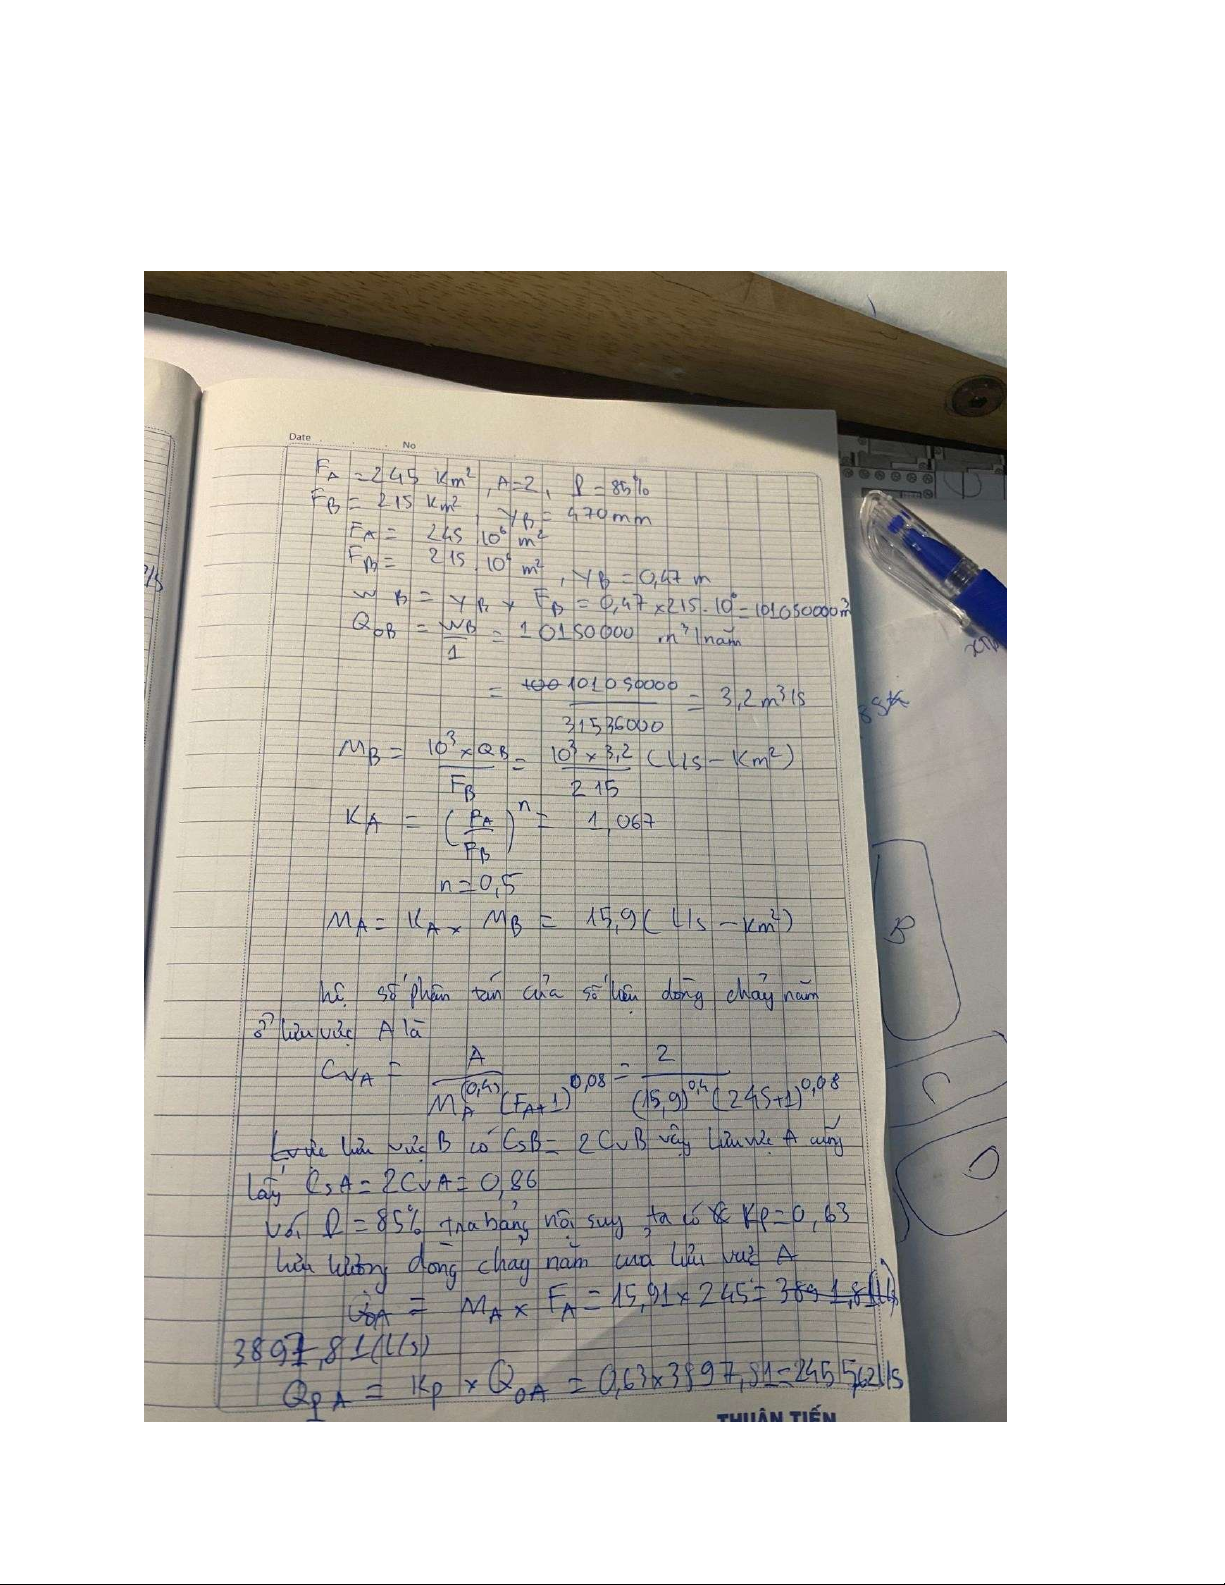 Date No
F_A = 245 Km², A=2, P = 85%
F_B = 215 Km², Y_B = 470mm
F_A = 245.10⁶ m²
F_B = 215.10⁶ m², Y_B = 0,47 m
W_B = Y_B × F_B = 0,47 × 215.10⁶ = 101050000 m³
Q_0B = W_B / 1 = 10150000 m³/năm
= 101050000 / 31536000 = 3,2 m³/s
M_B = 10³ × Q_B / F_B = 10³ × 3,2 / 215 (l/s – Km²)
K_A = (F_A / F_B)ⁿ = 1,067
n = 0,5
M_A = K_A × M_B = 15,9 (l/s – Km²)
hệ số phân tán của số liệu dòng chảy năm
ở lưu vực A là
C_VA = A / M_A^(0,4) (F_A+1)^0,08 = 2 / (15,9)^0,4 (245+1)^0,08
lưu vực B có C_SB = 2C_VB vậy lưu vực A cũng
lấy C_SA = 2C_VA = 0,86
Với P = 85% tra bảng nội suy ta có Kp = 0,63
lưu lượng dòng chảy năm của lưu vực A
Q_0A = M_A × F_A = 15,91 × 245 =
3897,81 (l/s)
Q_PA = Kp × Q_0A = 0,63 × 3897,81 = 2455,62 l/s
THUẬN TIẾN
B
C
D